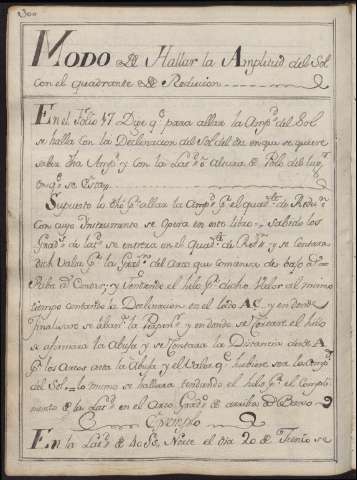 Modo de Hallar la Amplitud del Sol
con el quadrante de Reducion
En el Folio 47 Dije q.e para allar la Amp.d del Sol
se halla con la Declinacion del Sol del dia en que se quiere
saber dha Amp.d y con la Lat.d o Altura de Polo del lug.r
en q.e se Estay
Supuesto lo dho p.a allar la Amp.d p.r el quad.te de Reduc.n
Con cuyo Instrumento se opera en este libro = Sabidos los
Grad.s de lat.d se entrara en el Quad.te de Red.n y se Contara
dicha
p.r los Grad.s del Arco que comienza de bajo
y tentando el hilo p.r dicho Valor al mismo
tiempo contando la Declinacion en el lado AC y en donde
finalizare se alzar la y en donde se Cortare el hilo
se afirmara la Abuja y se Contara la Distancia desde A
p.r los Arcos asta la Abuja y el Valor q.e hubiere sera los Amp.d
del Sol = lo mismo se hallara tendiendo el hilo p.r el Comple
mento de la Lat.d en el Arco Grad.o de arriba de Bajo
Exemplo
En la Lat.d de 40 G.s Norte el dia 20 de se